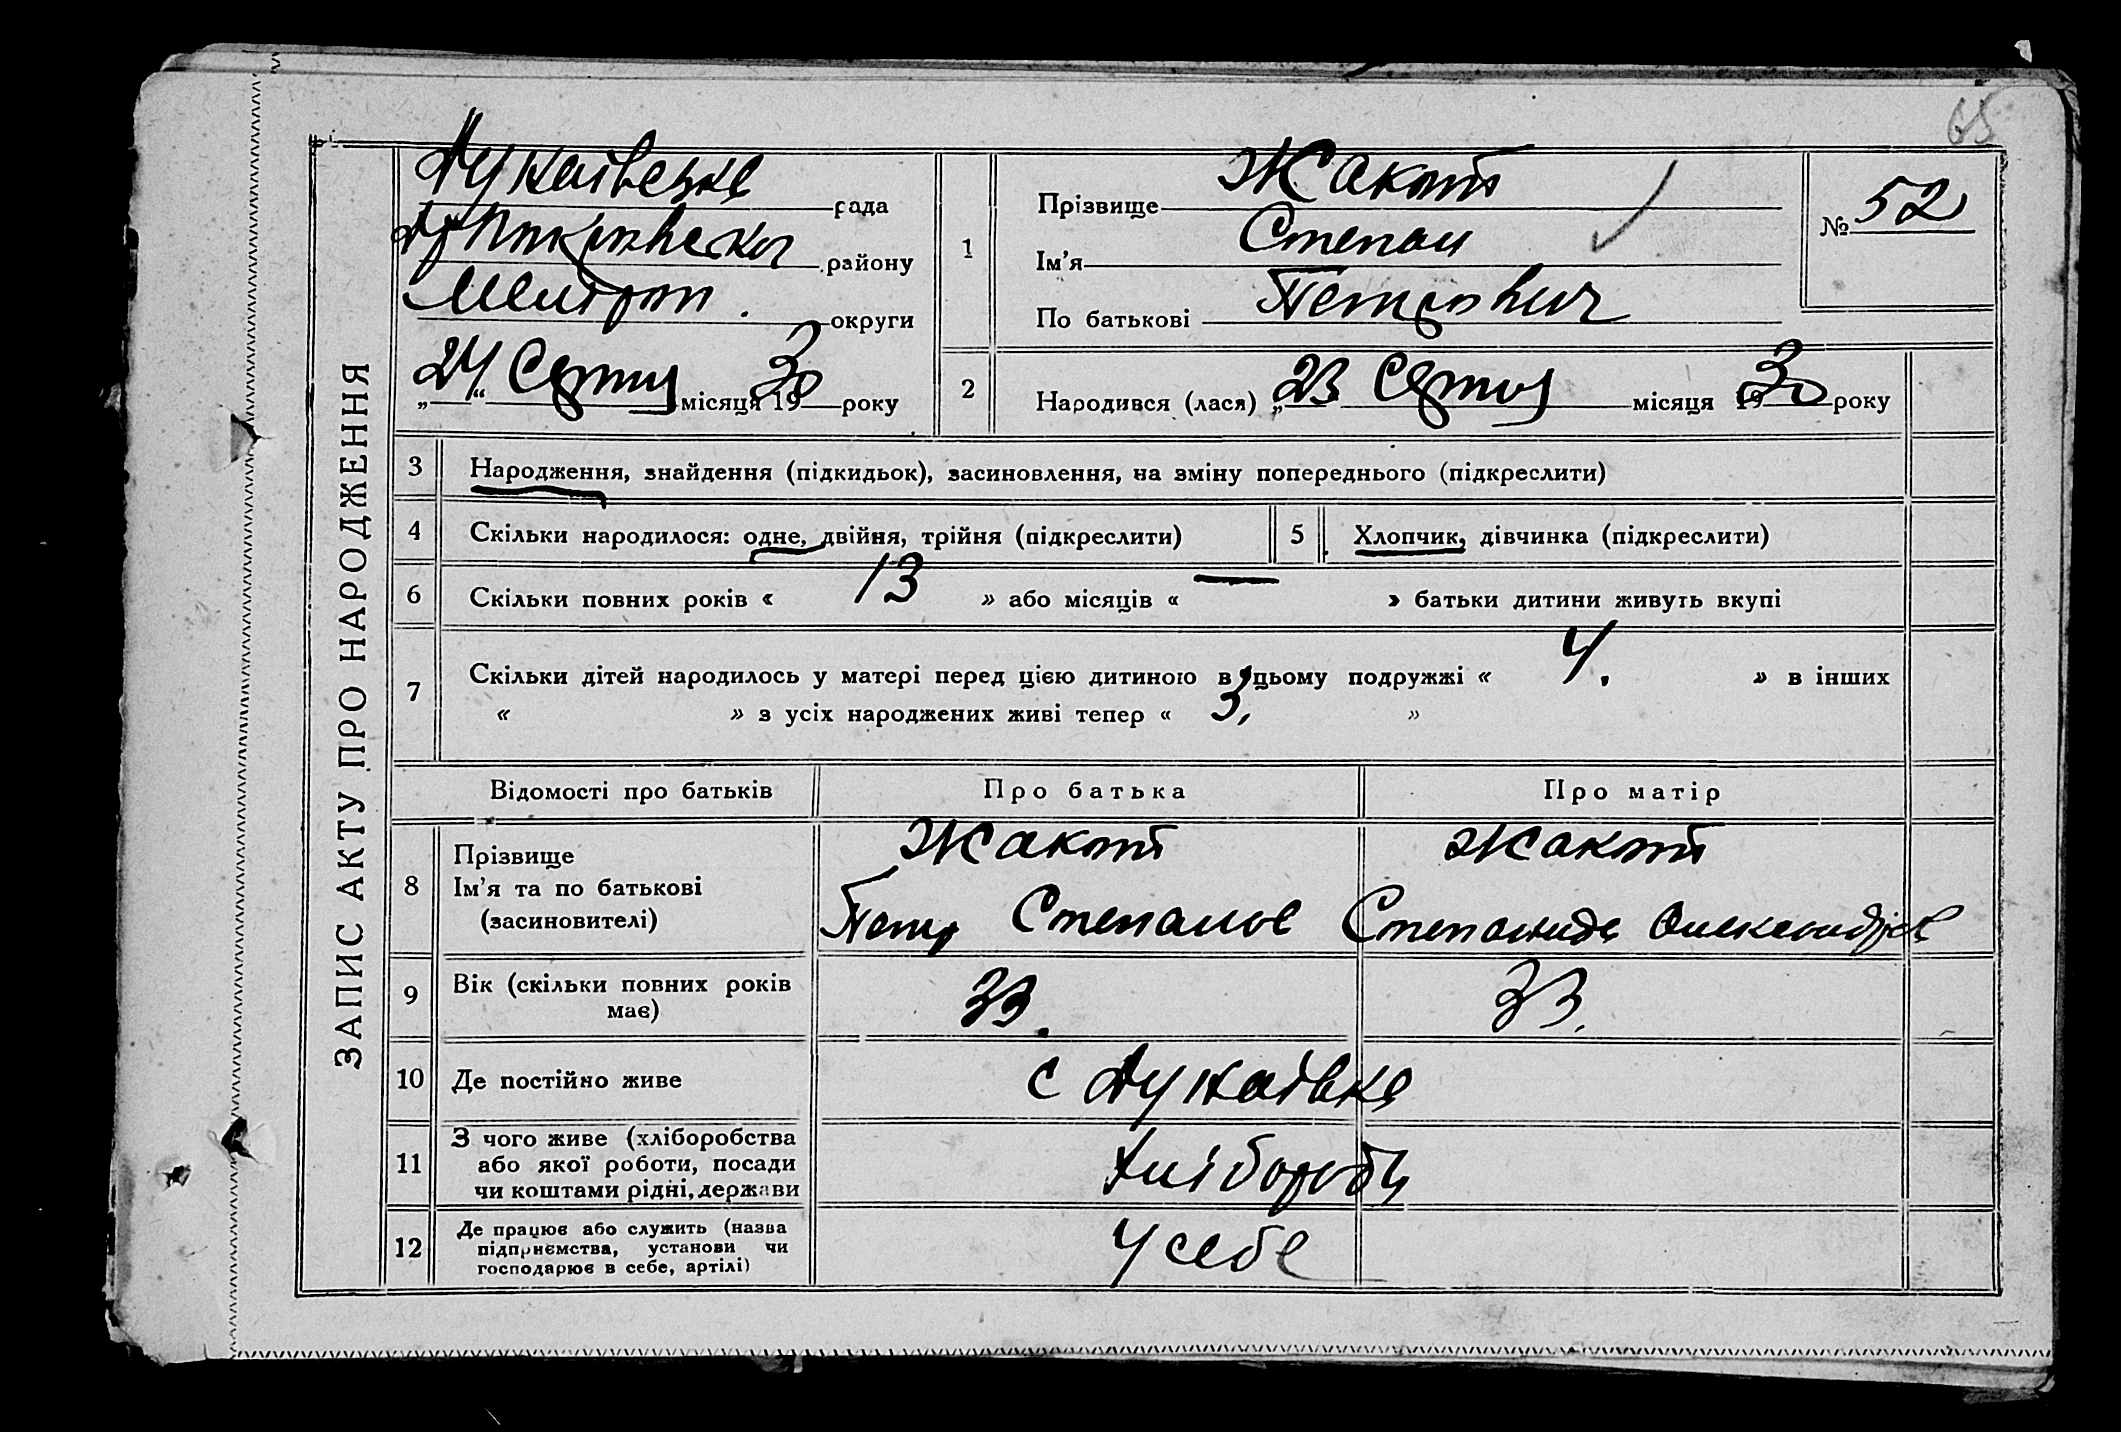 65
ЗАПИС АКТУ ПРО НАРОДЖЕННЯ
Дунаївська рада
району
Мелітоп. округи
„24“ Серпня місяця 1930 року
1
Прізвище Жакот
Ім’я Степан
По батькові Петрович
№ 52
2
Народився (лася) „23 Серпня місяця 1930 року
3 Народження, знайдення (підкидьок), засиновлення, на зміну попереднього (підкреслити)
4 Скільки народилося: одне, двійня, трійня (підкреслити) 5 Хлопчик, дівчинка (підкреслити)
6 Скільки повних років « 13 » або місяців « — » батьки дитини живуть вкупі
7 Скільки дітей народилось у матері перед цією дитиною в цьому подружжі « 4. » в інших
« » з усіх народжених живі тепер « 3, »
Відомості про батьків Про батька Про матір
8 Прізвище Жакот Жакот
Ім’я та по батькові Петро Степанов Степанида Олександрів
(засиновителі)
9 Вік (скільки повних років має) 33. 33.
10 Де постійно живе с Дунаївка
11 З чого живе (хліборобства
або якої роботи, посади
чи коштами рідні, держави Хлібороби
12 Де працює або служить (назва
підприємства, установи чи
господарює в себе, артілі) У себе